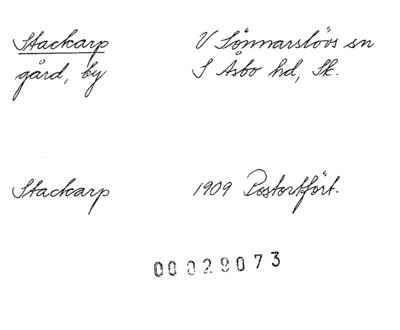 Stackarp V Sönnarslövs sn
gård, by S Åsbo hd, Sk.
Stackarp 1909 Postortfört.
00029073